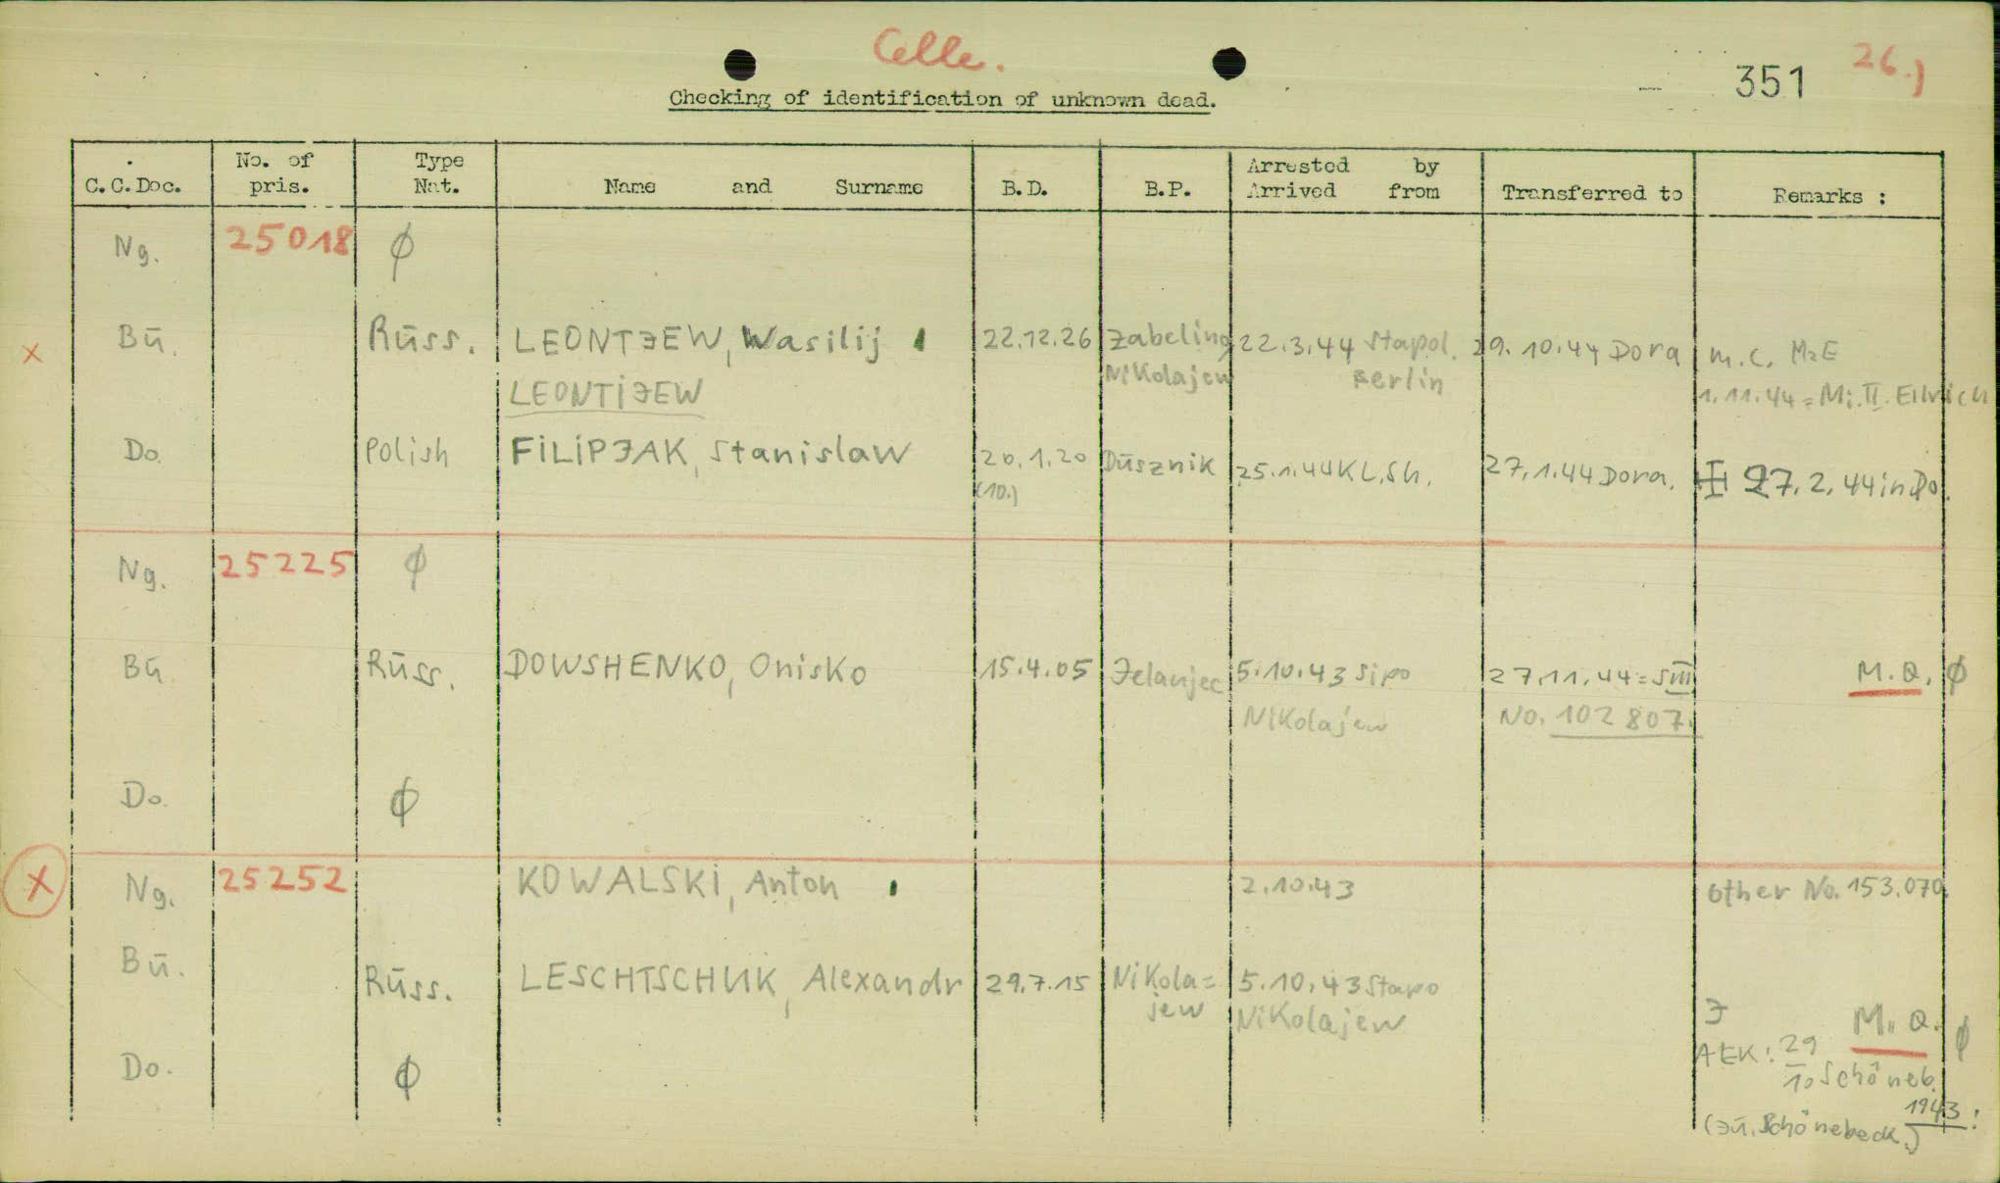 Celle.
351 26.)
Checking of identification of unknown dead.
C.C.Doc. No. of pris. Type Nat. Name and Surname B.D. B.P. Arrested by Arrived from Transferred to Remarks :
Ng. 25018 ϕ
x Bū. Rūss. LEONTJEW, Wasilij 22.12.26 Zabeling 22.3.44 Stapol. 29.10.44 Dora m.c.
LEONTIJEW Nikolajew Berlin 1.11.44 = Mi. II. Ellrich
Do. Polish FILIPJAK, Stanislaw 20.1.20 Dūsznik 25.1.44 KL.Sh. 27.1.44 Dora. 27.2.44 in Do.
(10.)
Ng. 25225 ϕ
Bū Rūss. DOWSHENKO, Onisko 15.4.05 Jelanjec 5.10.43 Sipo 27.11.44 = SIII M.Q. ϕ
Nikolajew No. 102 807.
Do. ϕ
x Ng. 25252 KOWALSKI, Anton 2.10.43 other No. 153.070
Bū. Rūss. LESCHTSCHUK, Alexandr 29.7.15 Nikola= 5.10.43 Stapo
jew Nikolajew J M.Q. ϕ
Do. ϕ AEK: 29/10 Schöneb.
1943!
(Jū. Schönebeck.)